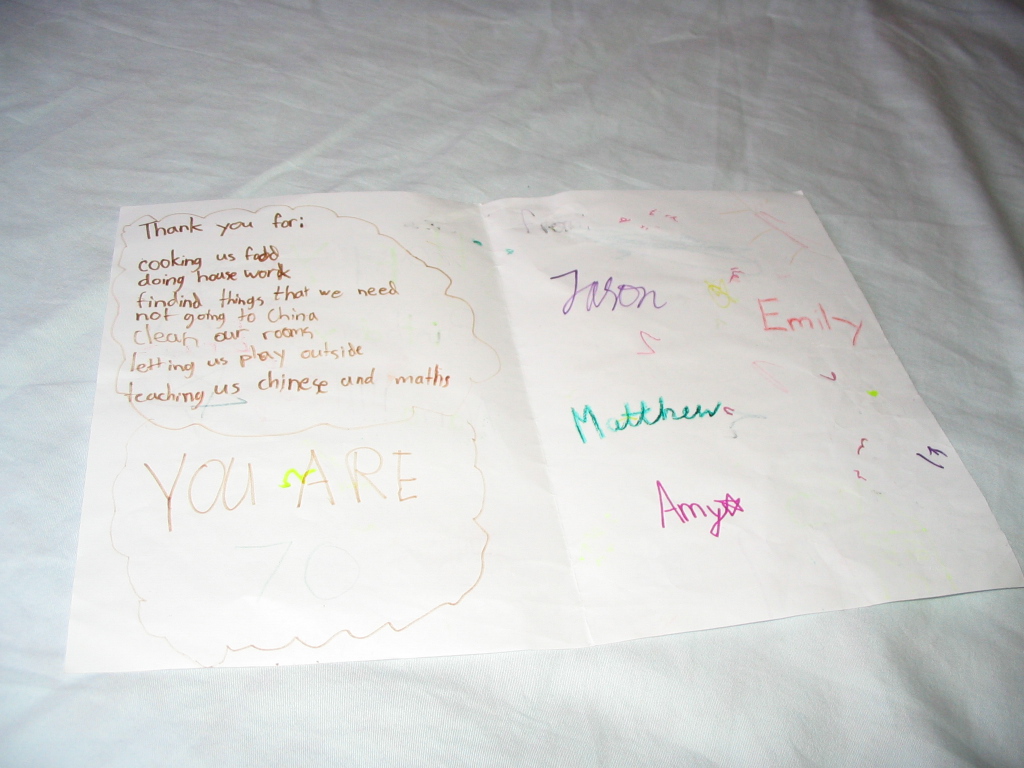 Thank you for:
cooking us fodd
doing house work
findind things that we need
not going to China
clean our rooms
letting us play outside
teaching us chinese and maths
YOU ARE
70
from:
Jason
Emily
Matthew
Amy